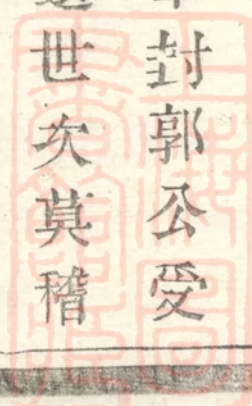 封郭公受
世次莫稽